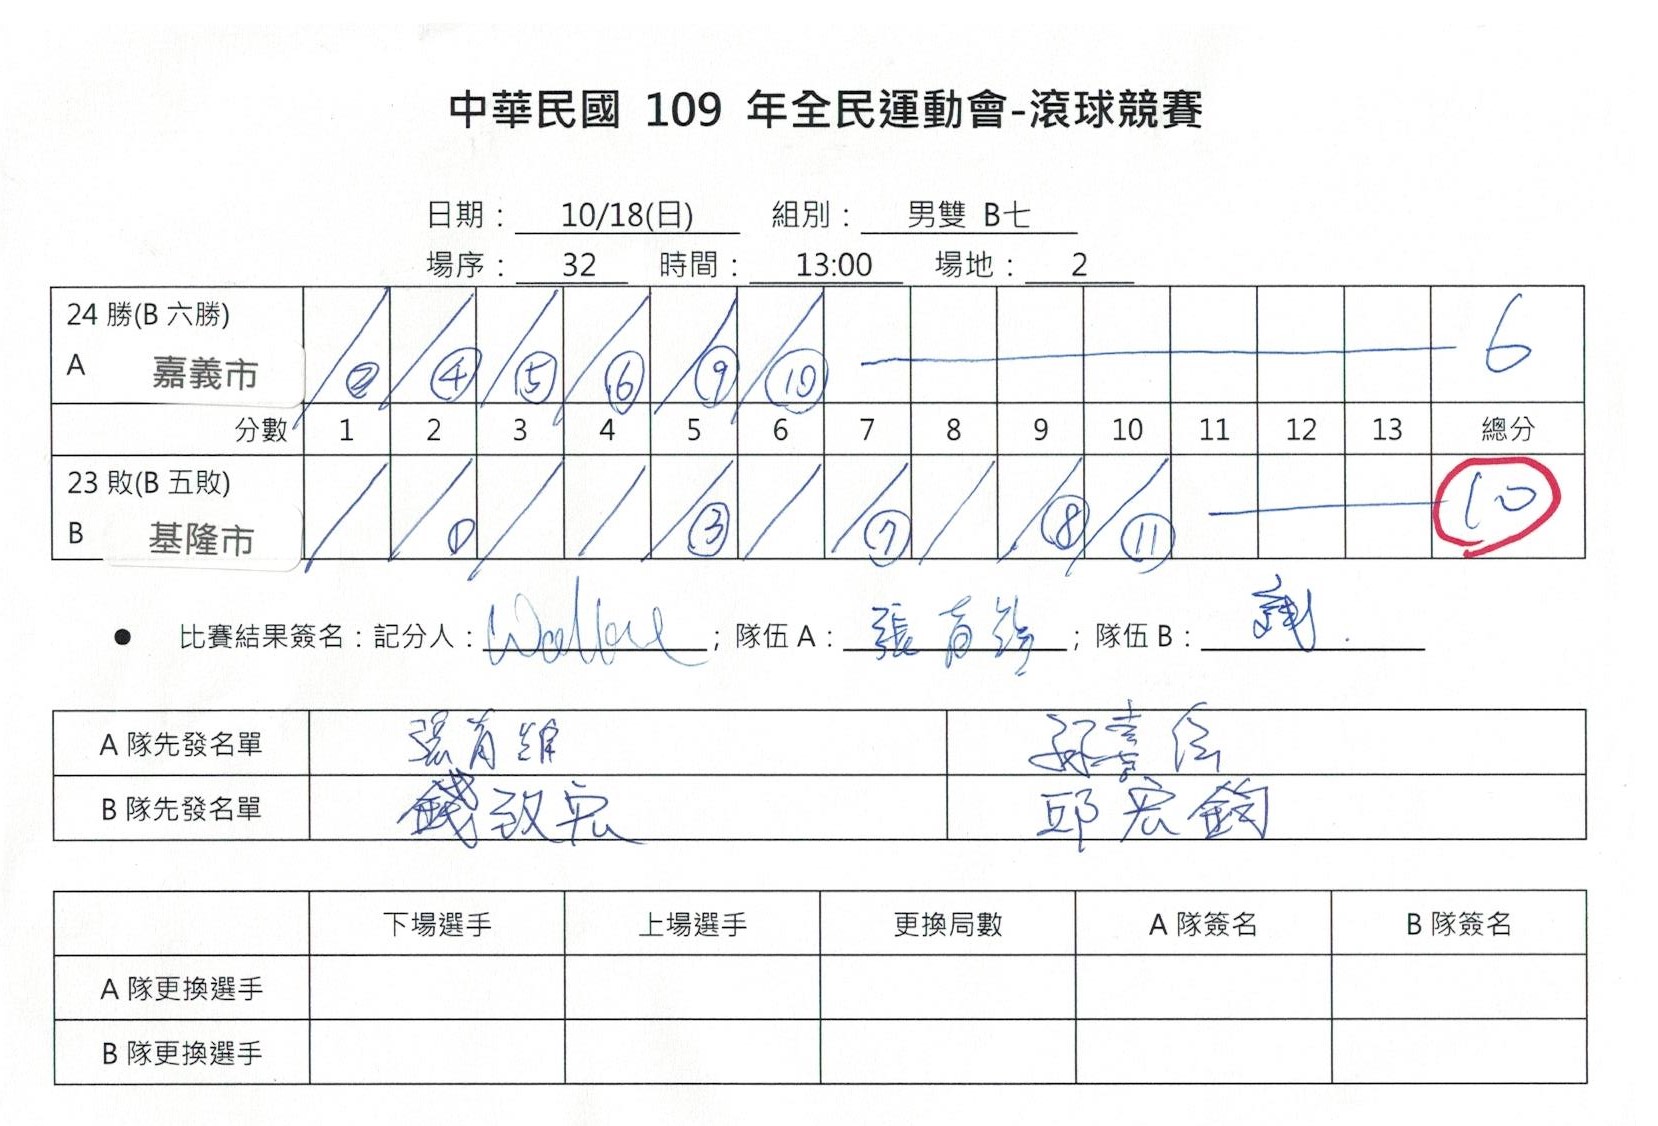 中華民國 109 年全民運動會-滾球競賽
日期： 10/18(日) 組別： 男雙 B七
場序： 32 時間： 13:00 場地： 2
24 勝(B 六勝)
A 嘉義市 ② ④ ⑤ ⑥ ⑨ ⑩ 6
分數 1 2 3 4 5 6 7 8 9 10 11 12 13 總分
23 敗(B 五敗)
B 基隆市 ① ③ ⑦ ⑧ ⑪ 10
● 比賽結果簽名：記分人： ；隊伍 A： 張育 ；隊伍 B：
A 隊先發名單 張育
B 隊先發名單 錢致宏 邱宏鈞
下場選手 上場選手 更換局數 A 隊簽名 B 隊簽名
A 隊更換選手
B 隊更換選手